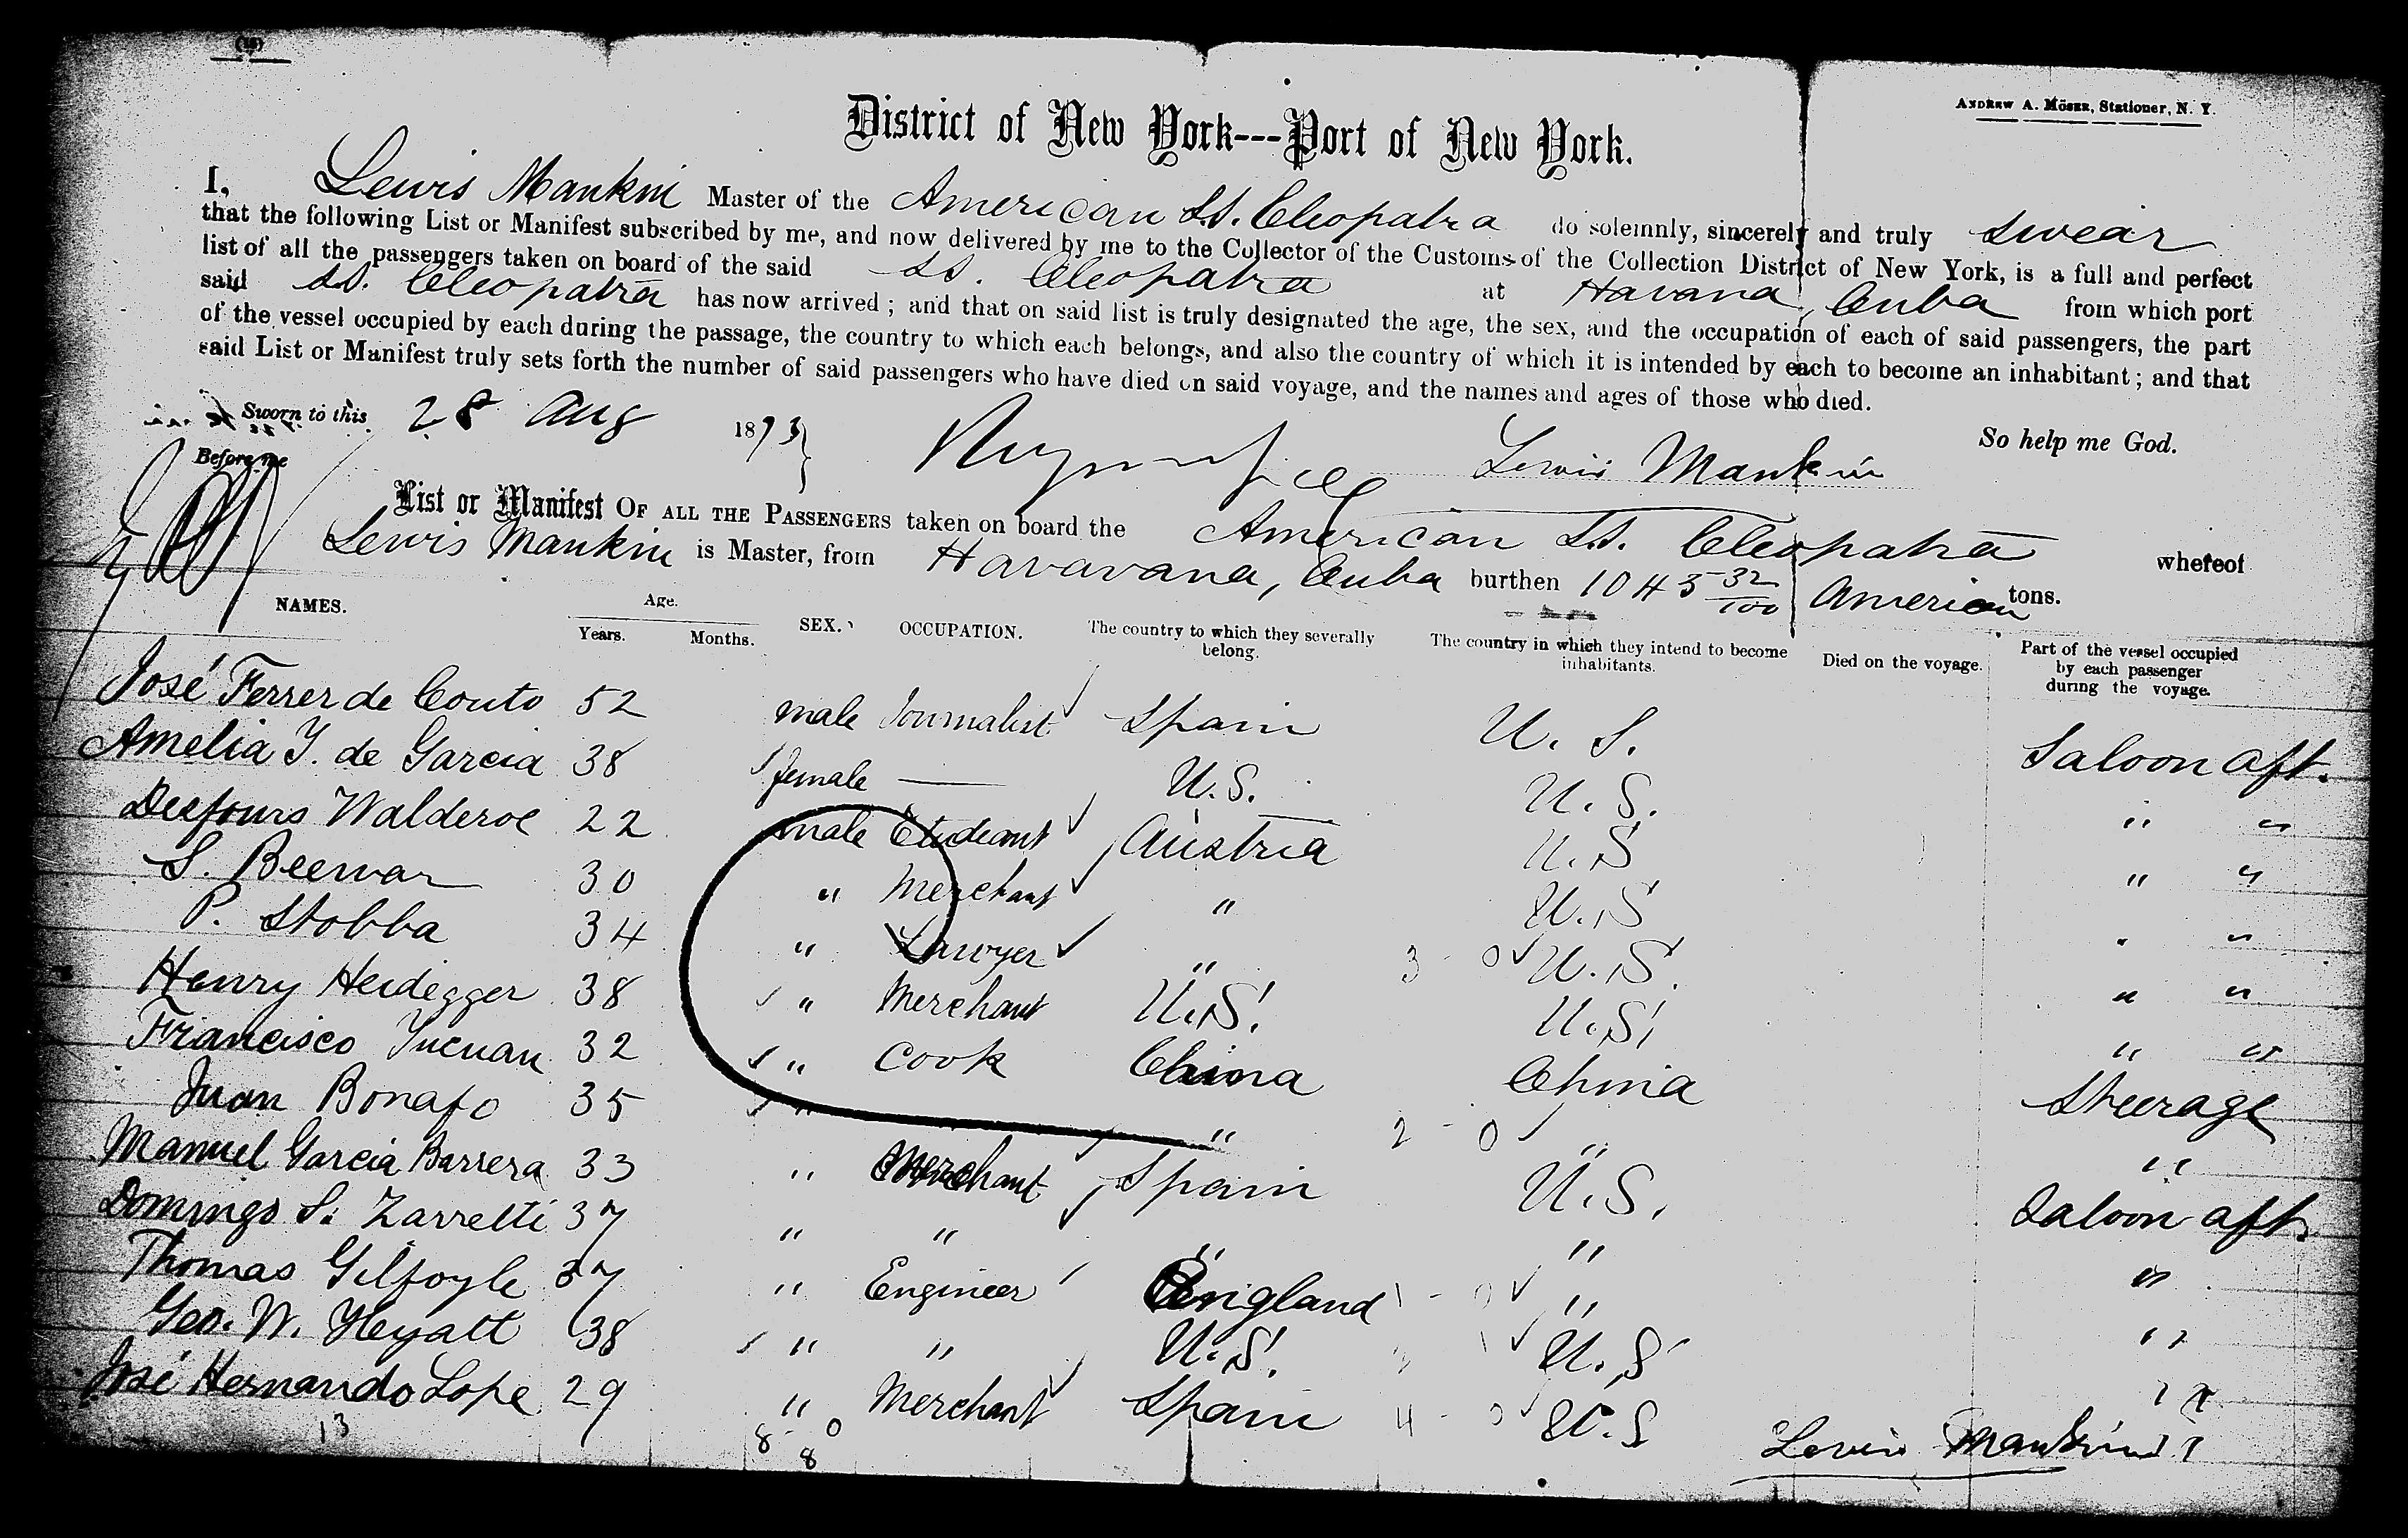 (18)
ANDREW A. MÖSER, Stationer, N. Y.
District of New York---Port of New York.
I, Lewis Mankin Master of the American S.S. Cleopatra do solemnly, sincerely and truly swear
that the following List or Manifest subscribed by me, and now delivered by me to the Collector of the Customs of the Collection District of New York, is a full and perfect
list of all the passengers taken on board of the said S.S. Cleopatra at Havana, Cuba from which port
said S.S. Cleopatra has now arrived; and that on said list is truly designated the age, the sex, and the occupation of each of said passengers, the part
of the vessel occupied by each during the passage, the country to which each belongs, and also the country of which it is intended by each to become an inhabitant; and that
said List or Manifest truly sets forth the number of said passengers who have died on said voyage, and the names and ages of those who died.
So help me God.
Sworn to this 28 Aug 1873
Lewis Mankin
Before me
List or Manifest OF ALL THE PASSENGERS taken on board the American S.S. Cleopatra whereof
Lewis Mankin is Master, from Havavana, Cuba burthen 1045 32/100 American tons.
NAMES. Age. Years. Months. SEX. OCCUPATION. The country to which they severally belong. The country in which they intend to become inhabitants. Died on the voyage. Part of the vessel occupied by each passenger during the voyage.
José Ferrer de Couto 52 male Journalist Spain U. S. Saloon aft.
Amelia Y. de Garcia 38 female — U.S. U. S. " "
Desfours Walderoe 22 male Etudeant Austria U.S " "
S. Beervar 30 " Merchant " U.S " "
P. Stobba 34 " Lawyer " 3 - 0 U.S. " "
Henry Heidegger 38 " Merchant U.S. U.S. " "
Francisco Yucuan 32 " Cook China China Steerage
Juan Bonafo 35 " " 2 - 0 " "
Manuel Garcia Barrera 33 " Merchant Spain U.S. Saloon aft.
Domingo S. Zarretti 37 " " " " "
Thomas Gilfoyle 37 " Engineer England 1 - 0 " "
Geo. W. Heyatt 38 " " U.S. U.S "
José Hernando Lope 29 " Merchant Spain 4 - 0 U.S
13 8 - 0
8
Lewis Mankin